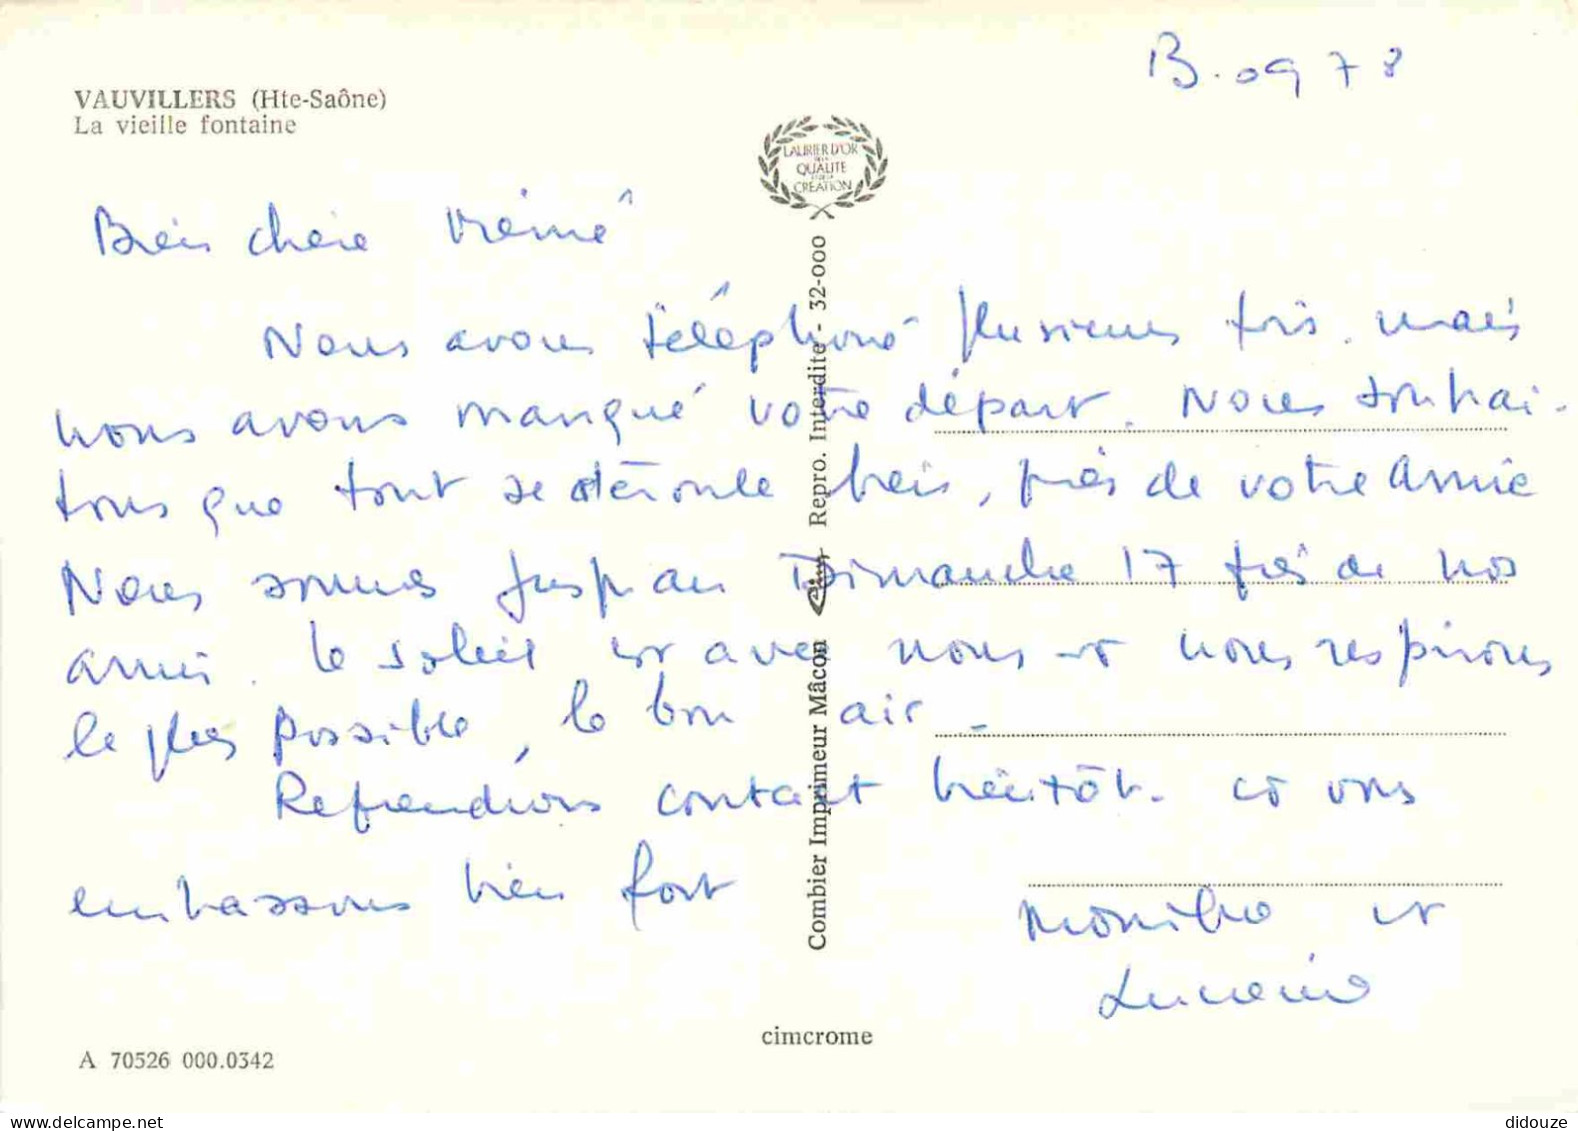 13.09 78
VAUVILLERS (Hte-Saône)
La vieille fontaine
LAURIER D'OR
DE LA
QUALITE
ET DE LA
CREATION
Bien chère Mémé
Nous avons téléphoné plusieurs fois. mais
nous avons manqué votre départ. Nous souhai-
tons que tout se déroule bien, près de votre Amie
Nous sommes jusqu'au Dimanche 17 près de nos
amis. le soleil est avec nous et nous respirons
le plus possible, le bon air.
Reprendrons contact bientôt. et vous
embrassons bien fort
Monique et
Combier Imprimeur Mâcon Repro. Interdite - 32-000
cimcrome
A 70526 000.0342
didouze